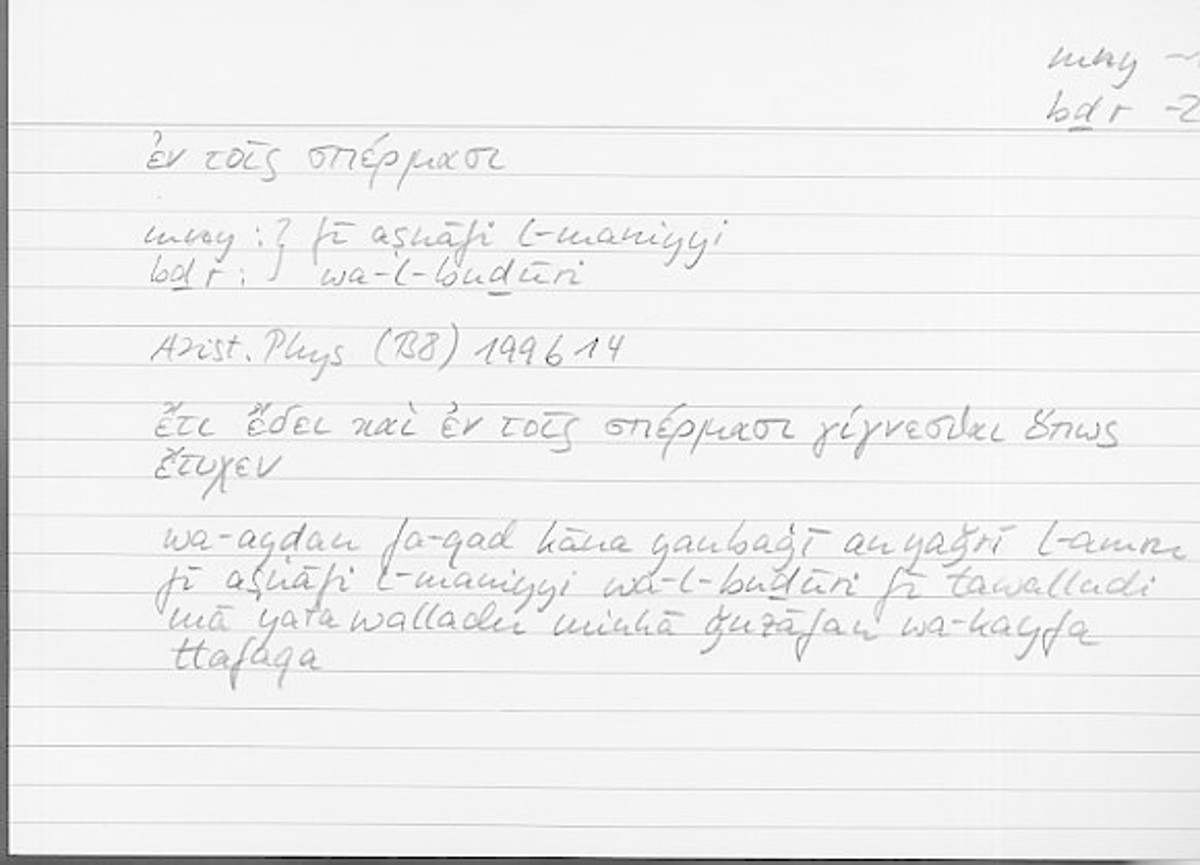 mny ~1
bḏr -2
ἐν τοῖς σπέρμασι
mny : } fī aṣnāfi l-maniyyi
bḏr : } wa-l-buḏūri
Arist. Phys (B8) 199b14
ἔτι ἔδει καὶ ἐν τοῖς σπέρμασι γίγνεσθαι ὅπως
ἔτυχεν
wa-ayḍan fa-qad kāna yanbaġī an yaǧrī l-amru
fī aṣnāfi l-maniyyi wa-l-buḏūri fī tawalludi
mā yatawalladu minhā ǧuzāfan wa-kayfa
ttafaqa